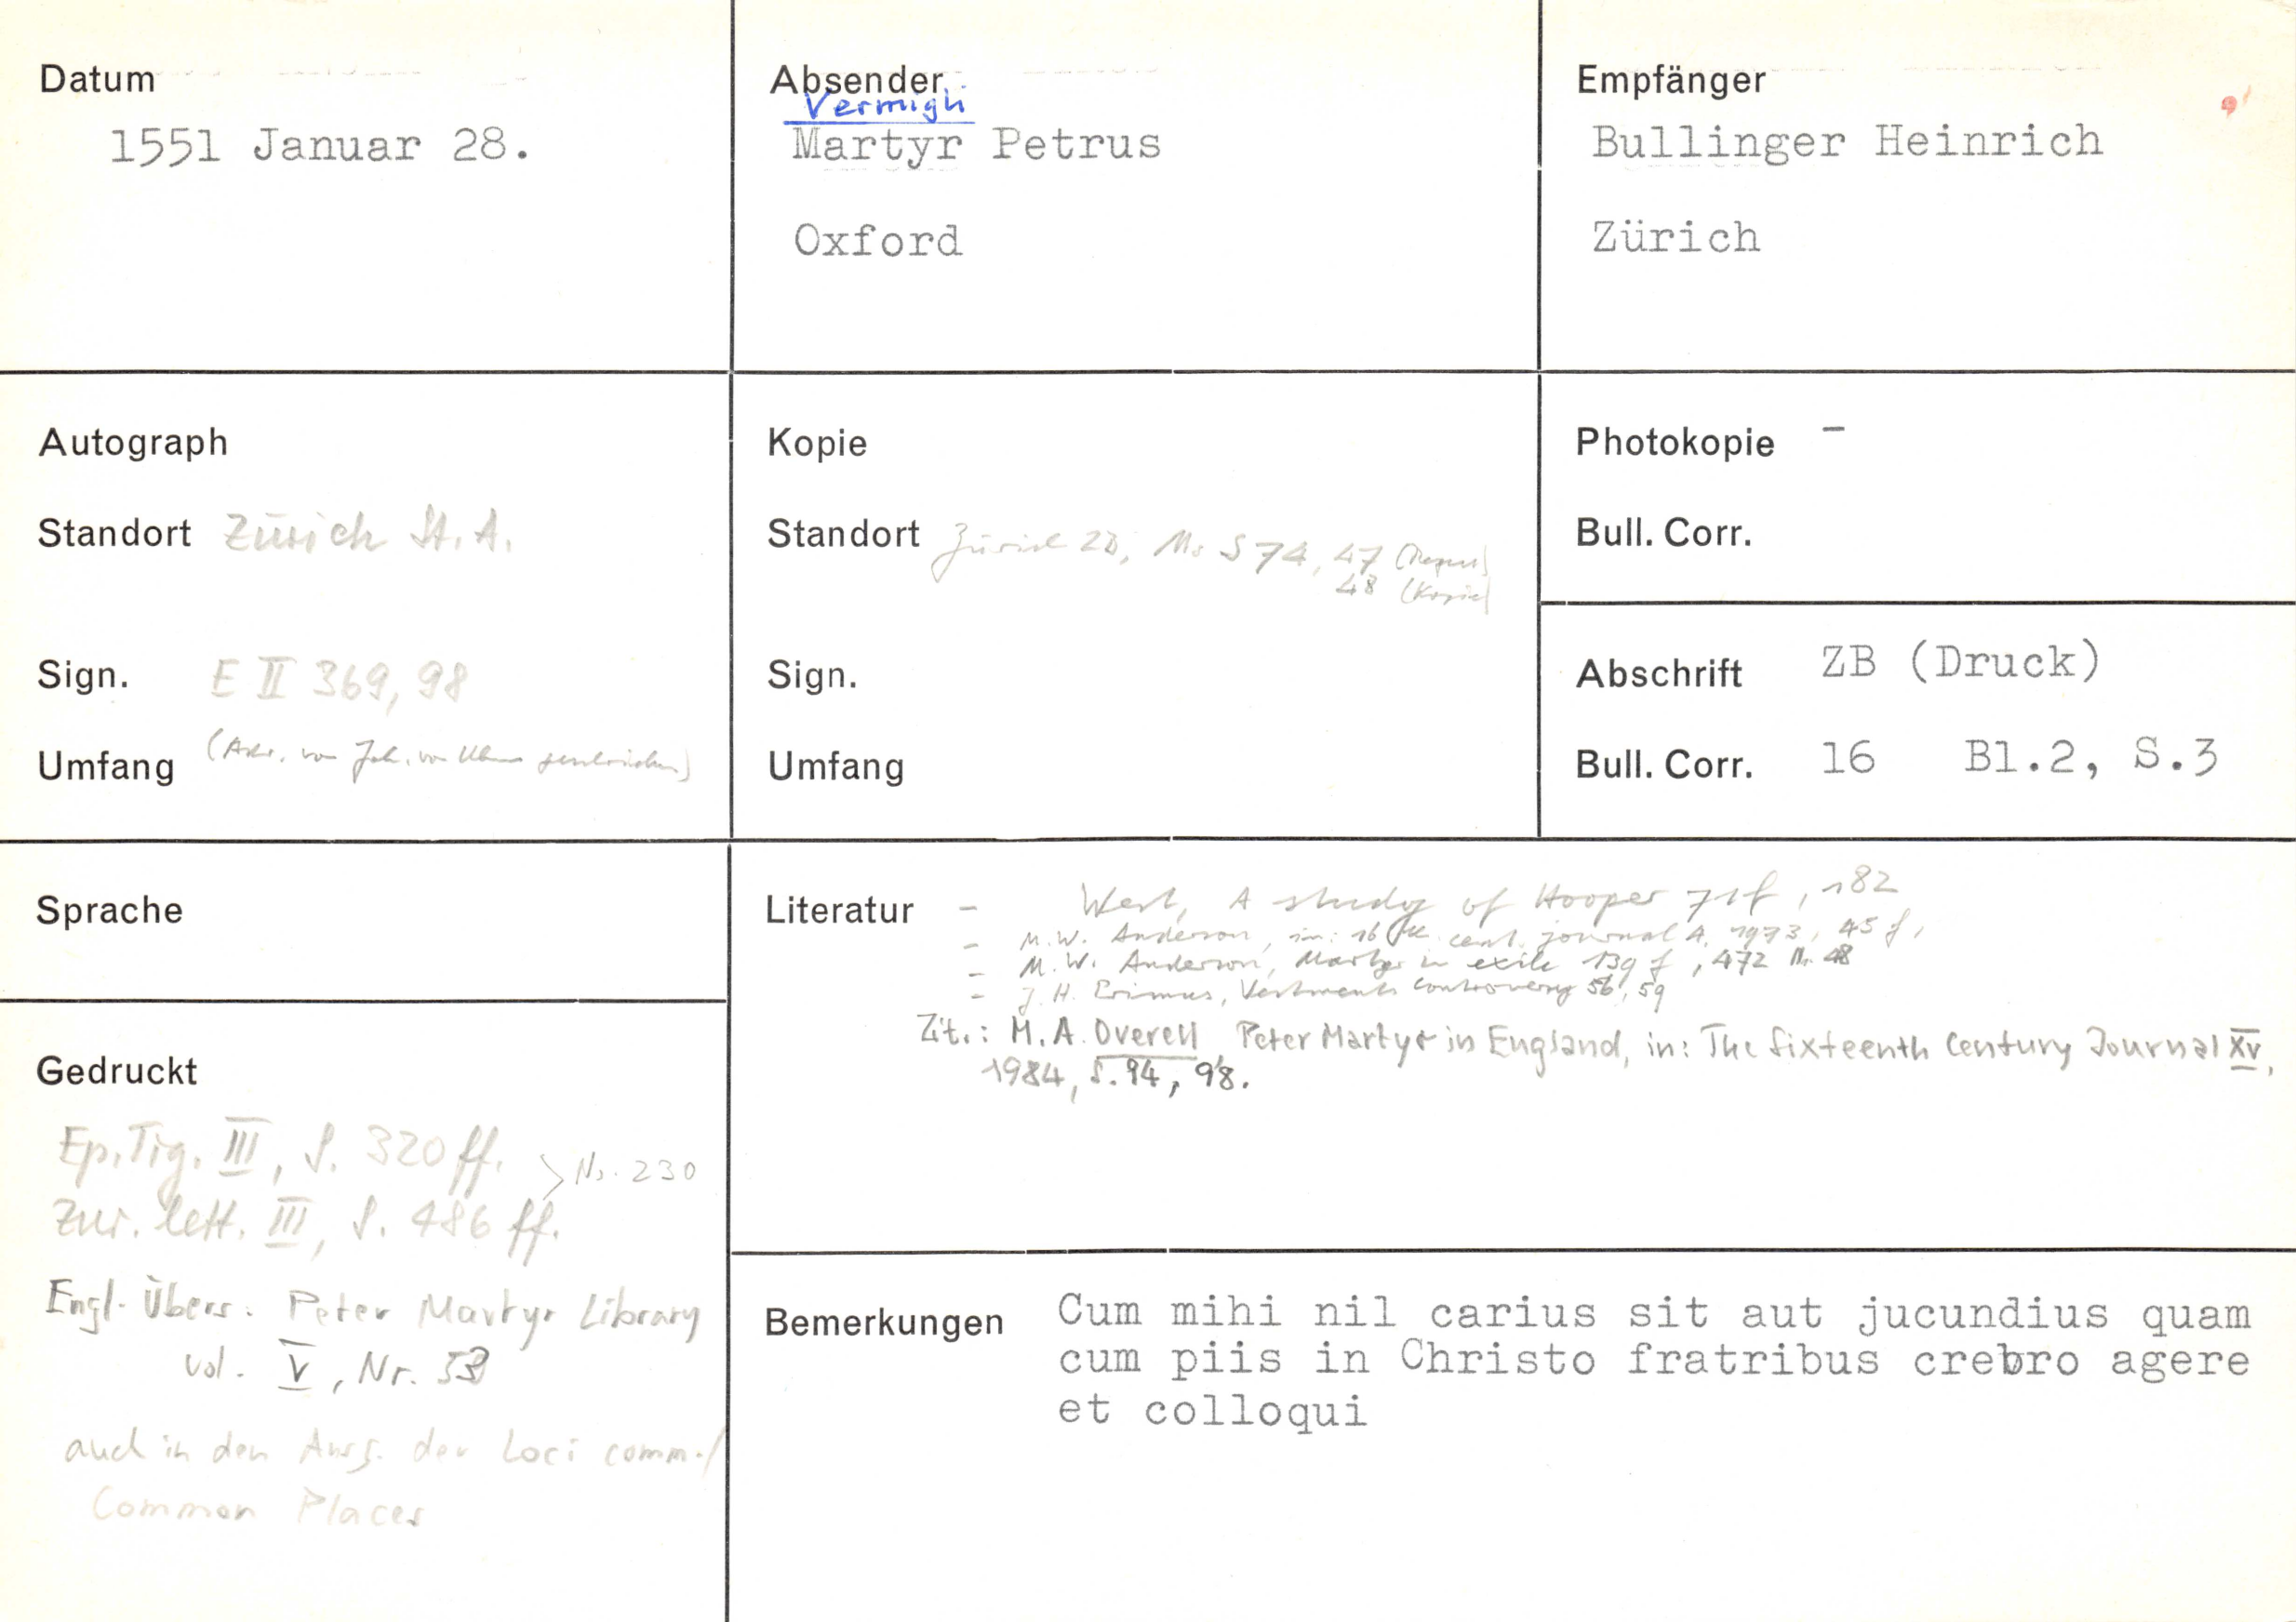 Datum
1551 Januar 28.
Absender
Vermigli
Martyr Petrus
Oxford
Empfänger
Bullinger Heinrich
Zürich
Autograph
Standort Zürich St. A.
Sign. E II 369, 98
Umfang (Adr. von Joh. von Ulm geschrieben)
Kopie
Standort Zürich ZB, Ms S 74, 47 (Regest)
48 (Kopie)
Sign.
Umfang
Photokopie -
Bull. Corr.
Abschrift ZB (Druck)
Bull. Corr. 16 Bl.2, S.3
Sprache
Gedruckt
Ep. Tig. III, S. 320 ff.
> Nr. 230
Zur. lett. III, S. 486 ff.
Engl. Übers. Peter Martyr Library
vol. V, Nr. 53
auch in den Ausg. der Loci comm./
Common Places
Literatur - West, A study of Hooper 71f, 182
- M.W. Anderson, in: 16th cent. journal 4, 1973, 45 f,
- M.W. Anderson, Martyr in exile 139 f, 472 Nr. 48
- J. H. Primus, Vestments Controversy 56, 59
Zit.: M. A. Overell Peter Martyr in England, in: The Sixteenth Century Journal XV,
1984, S. 94, 98.
Bemerkungen Cum mihi nil carius sit aut jucundius quam
cum piis in Christo fratribus crebro agere
et colloqui